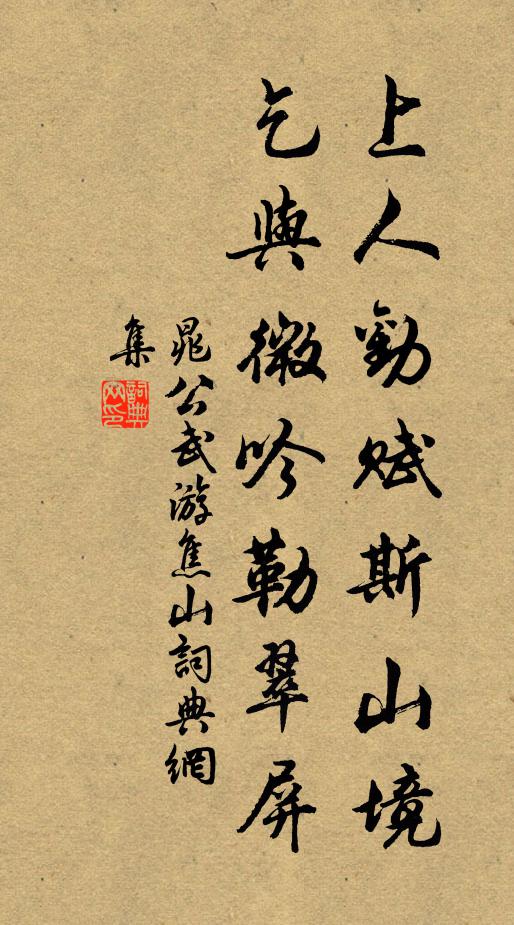 上人勸賦斯山境
乞與微吟勒翠屏
晁公武游焦山詞典網
集
詞典網印